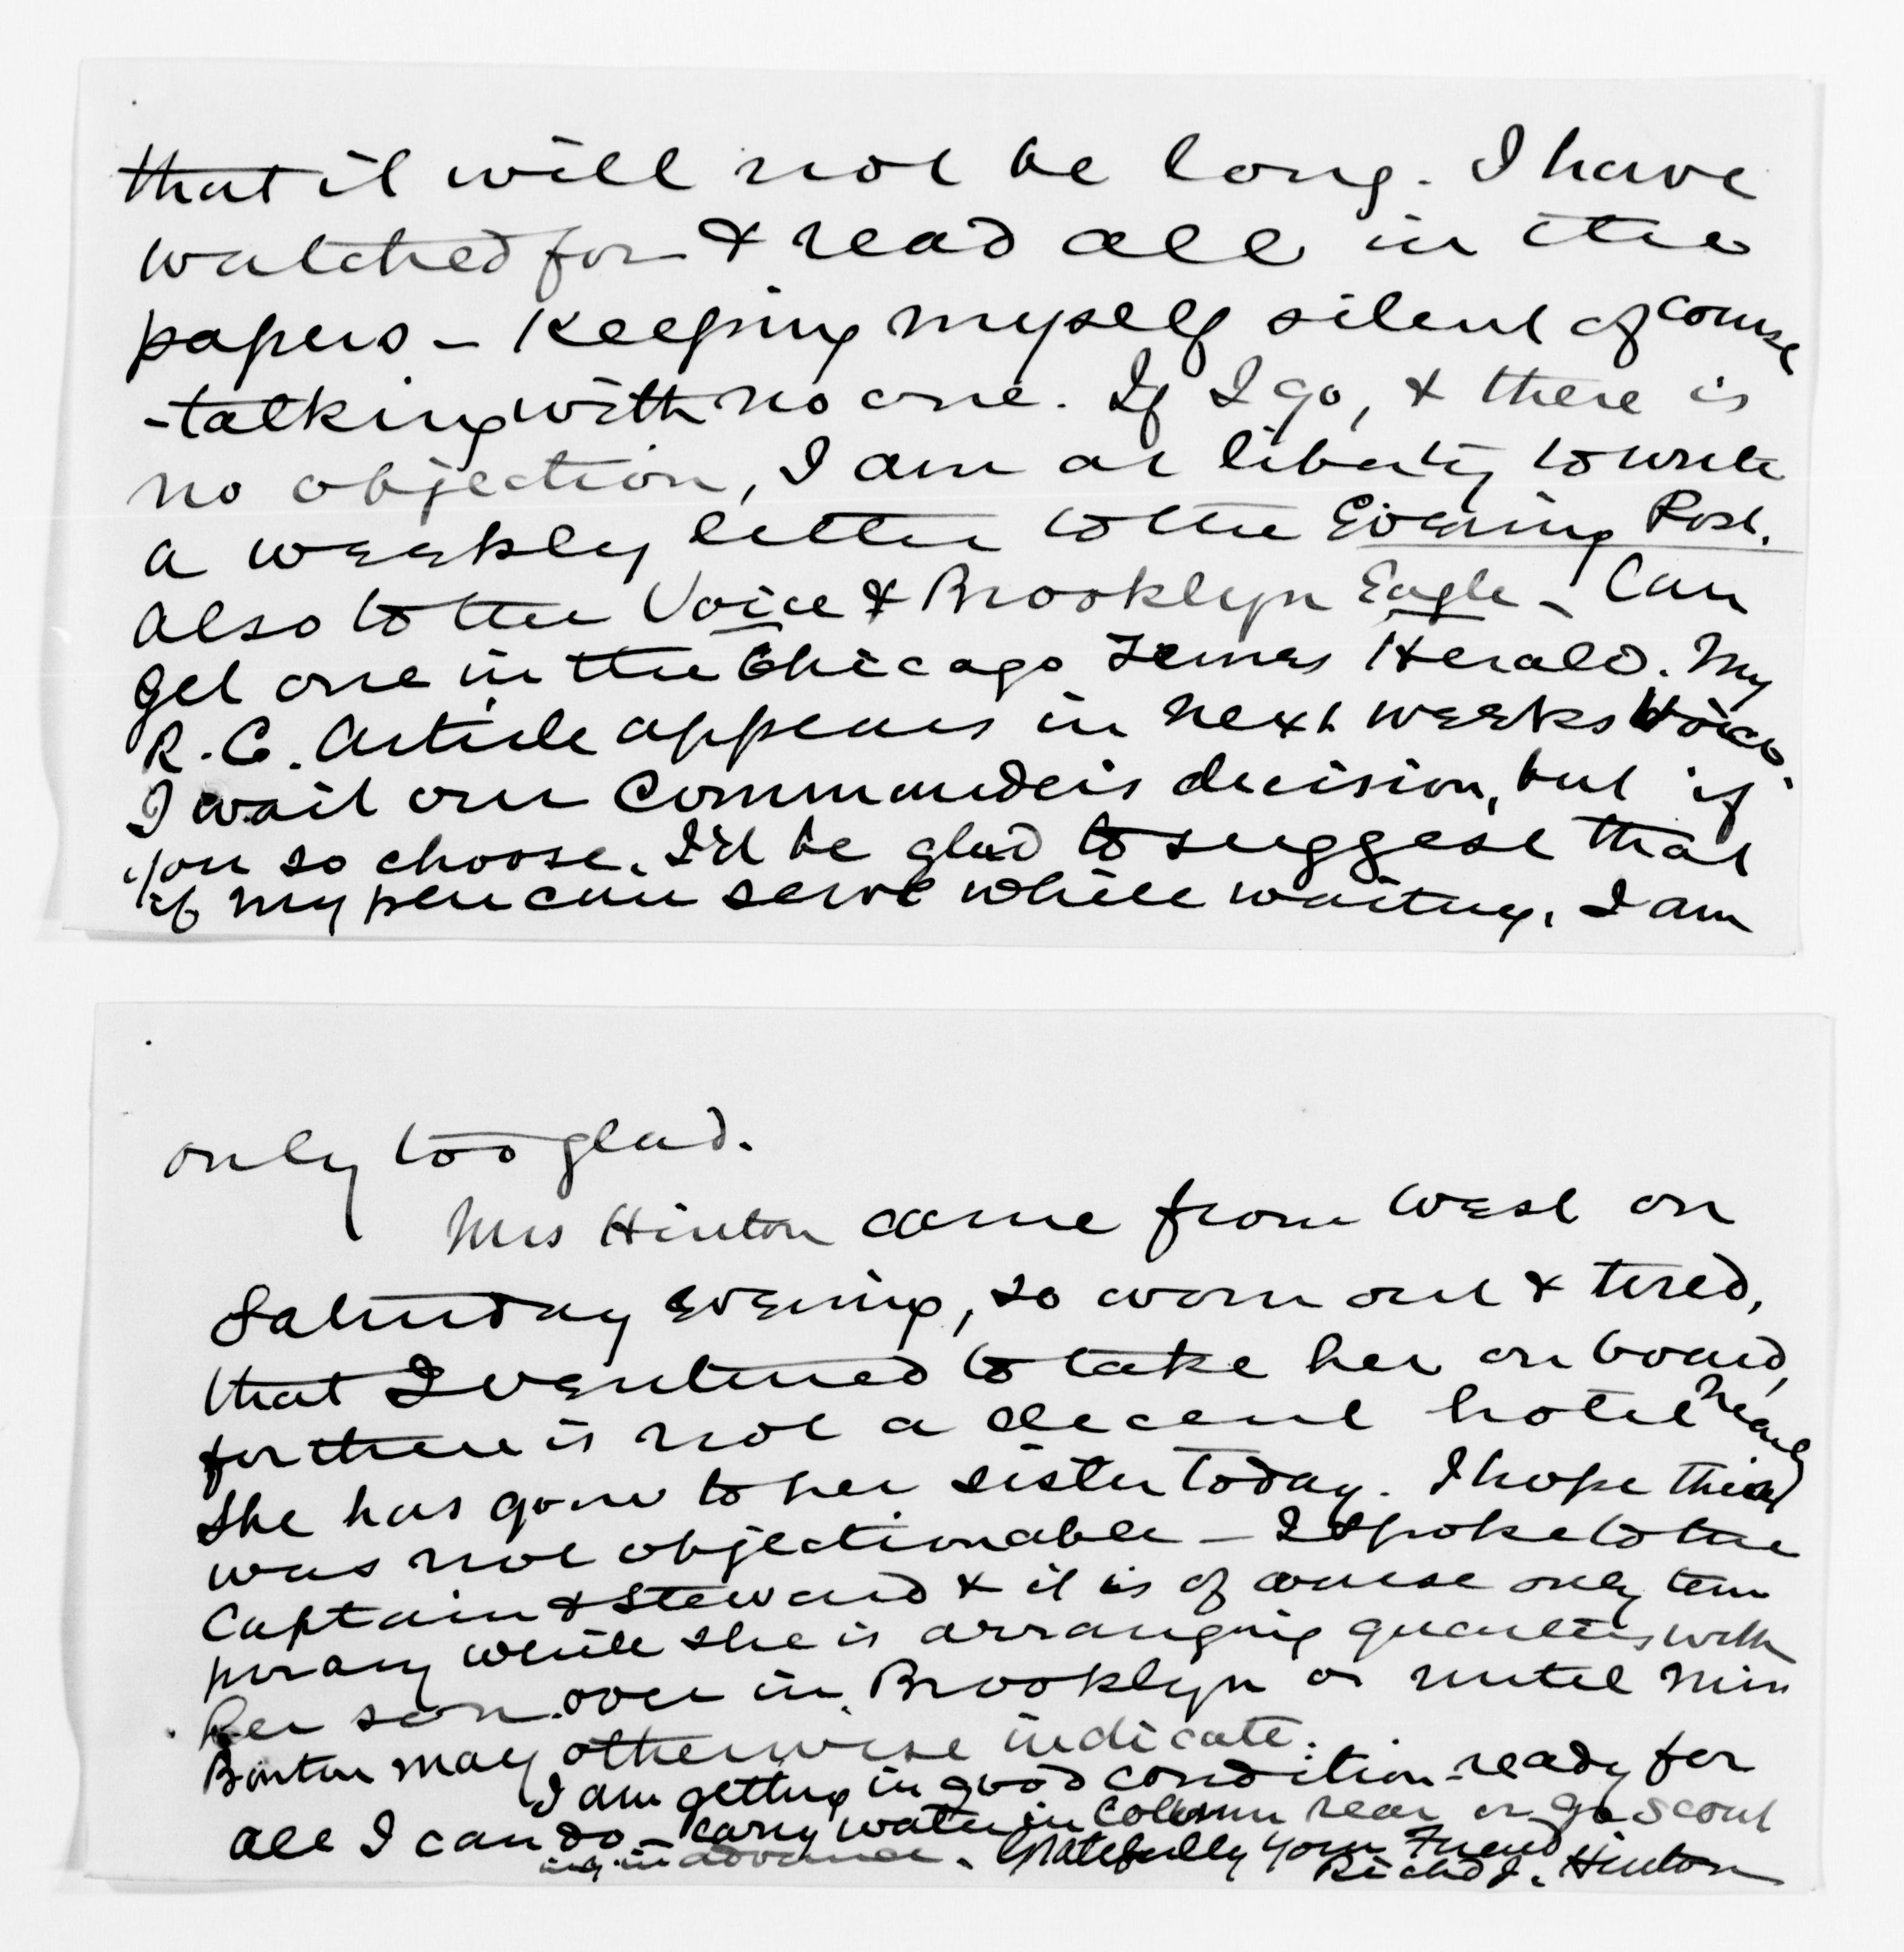 that it will not be long. I have
watched for & read all in the
papers - Keeping myself silent of course
- talking with no one. If I go, & there is
no objection, I am at liberty to write
a weekly letter to the Evening Post.
Also to the Voice & Brooklyn Eagle - Can
get one in the Chicago Times Herald. My
R. C. Article appears in next weeks Voice.
I wait our Commanders decision, but if
you so choose, I'd be glad to suggest that
if my pen can serve while waiting, I am
only too glad.
Mrs Hinton came from West on
Saturday evening, so worn out & tired,
that I ventured to take her on board,
for there is not a decent hotel near
She has gone to her sister today. I hope this
was not objectionable - I spoke to the
Captain & Steward & it is of course only tem
porary while she is arranging quarters with
her son over in Brooklyn or until Miss
Barton may otherwise indicate.
I am getting in good condition - ready for
all I can do - carry water in column rear or go scout
ing in advance. Gratefully your Friend
Richd J. Hinton